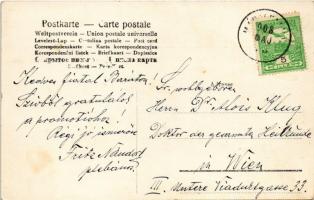 Postkarte – Carte postale
Weltpostverein – Union postale universelle
Levelező-Lap – Post card
Correspondenzkarte – Karta korespondencyjna
Korespondenční listek – Brietkaart – Dopisnica
Kedves fiatal Barátom
Szivből gratulálok
a promotiohoz!
Régi jó ismerőse
Fritz Nándor
plébános
Sr. postbefizetve
Herrn Dr Alois Klug
Doktor der gesammten Heilkunde
in Wien
III. Untere Viaductgasse 33.
5